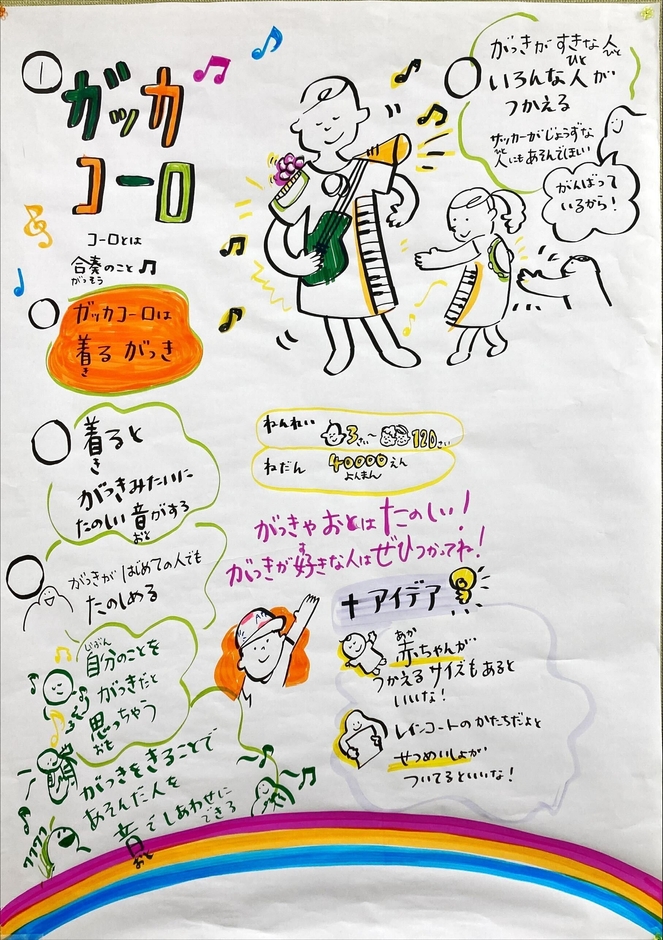 1
ガッカ
コーロ
コーロとは
合奏のこと
がっそう
ガッカコーロは
着る がっき
き
着ると
き
がっきみたいに
たのしい音がする
おと
がっきがはじめての人でも
たのしめる
じぶん
自分のことを
がっきだと
思っちゃう
おも
がっきをきることで
あそんだ人を
音でしあわせに
できる
おと
がっきがすきな人
ひと
いろんな人が
ひと
つかえる
サッカーがじょうずな
人にもあそんでほしい
ひと
がんばって
いるから!
ねんれい 3さい〜 120さい
ねだん 40000えん
よんまん
がっきやおとはたのしい!
がっきが好きな人はぜひつかってね!
す
+アイデア
あか
赤ちゃんが
つかえるサイズもあると
いいな!
レインコートのかたちだよと
せつめいしょが
ついてるといいな!